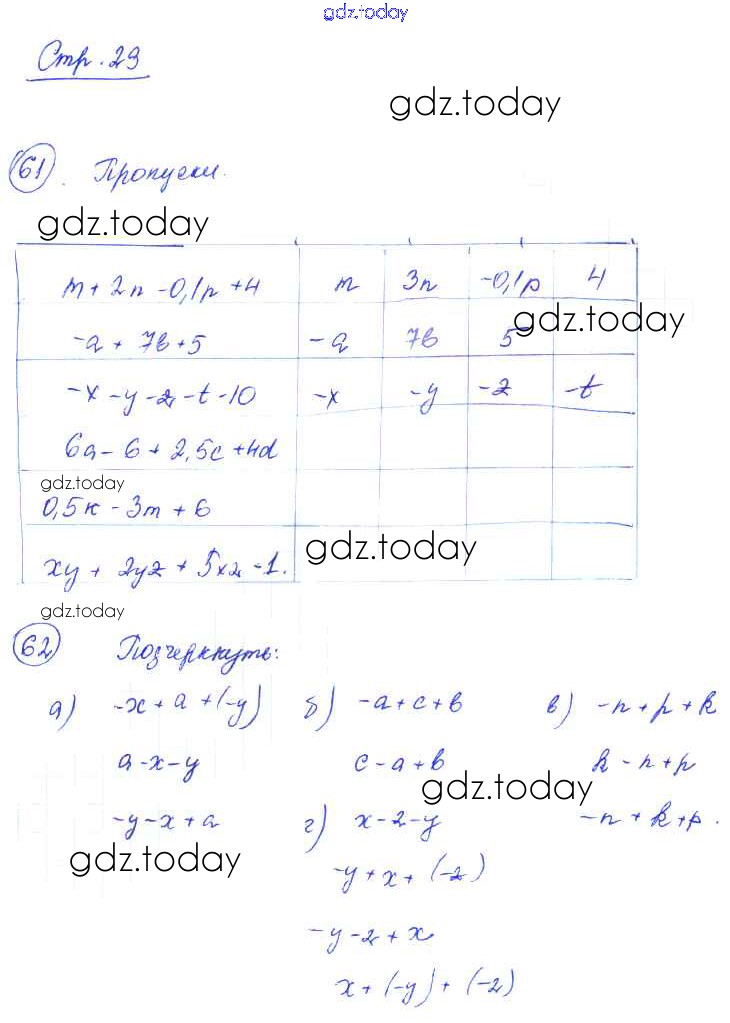 gdz.today
Стр. 29
gdz.today
61. Пропуски.
gdz.today
m + 2n - 0,1p + 4 m 3n -0,1p 4
gdz.today
-a + 7b + 5 -a 7b 5
-x - y - z - t - 10 -x -y -z -t
6a - 6 + 2,5c + 4d
gdz.today
0,5k - 3m + 6
gdz.today
xy + 2yz + 5xz - 1.
gdz.today
62 Подчеркнуть:
а) -x + a + (-y) б) -a + c + b в) -n + p + k
a - x - y c - a + b k - n + p
gdz.today
-y - x + a г) x - z - y -n + k + p.
gdz.today
-y + x + (-z)
-y - z + x
x + (-y) + (-z)